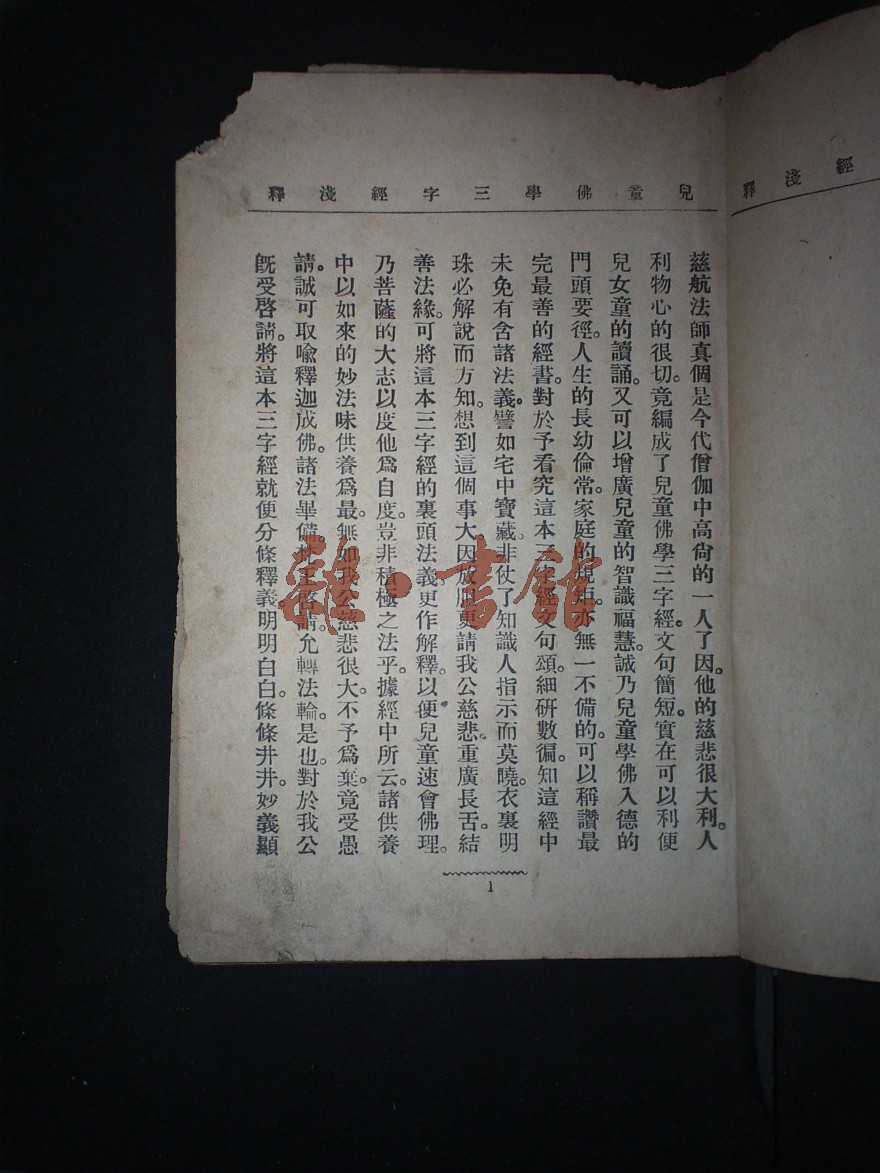 兒童佛學三字經淺釋
慈航法師真個是今代僧伽中高尙的一人了。因他的慈悲很大。利人
利物心的很切。竟編成了兒童佛學三字經。文句簡短。實在可以利便
兒女童的讀誦。又可以增廣兒童的智識福慧。誠乃兒童學佛入德的
門頭要徑。人生的長幼倫常。家庭的規矩。亦無一不備的。可以稱讚最
完最善的經書。對於予看究這本三字經文句頌。細研數徧。知這經中
未免有含諸法義。譬如宅中寶藏。非仗了知識人指示而莫曉。衣裏明
珠必解說而方知。想到這個事大因故。更請我公慈悲。重廣長舌。結
善法緣。可將這本三字經的裏頭法義更作解釋。以便兒童速會佛理。
乃菩薩的大志以度他爲自度。豈非積極之法乎。據經中所云。諸供養
中以如來的妙法味供養爲最。無如我公慈悲很大。不予爲棄。竟受愚
請。誠可取喩釋迦成佛。諸法畢備。梵王啓請。允轉法輪。是也。對於我公
旣受啓請。將這本三字經就便分條釋義。明明白白。條條井井。妙義顯
1
經淺釋
雜·書館